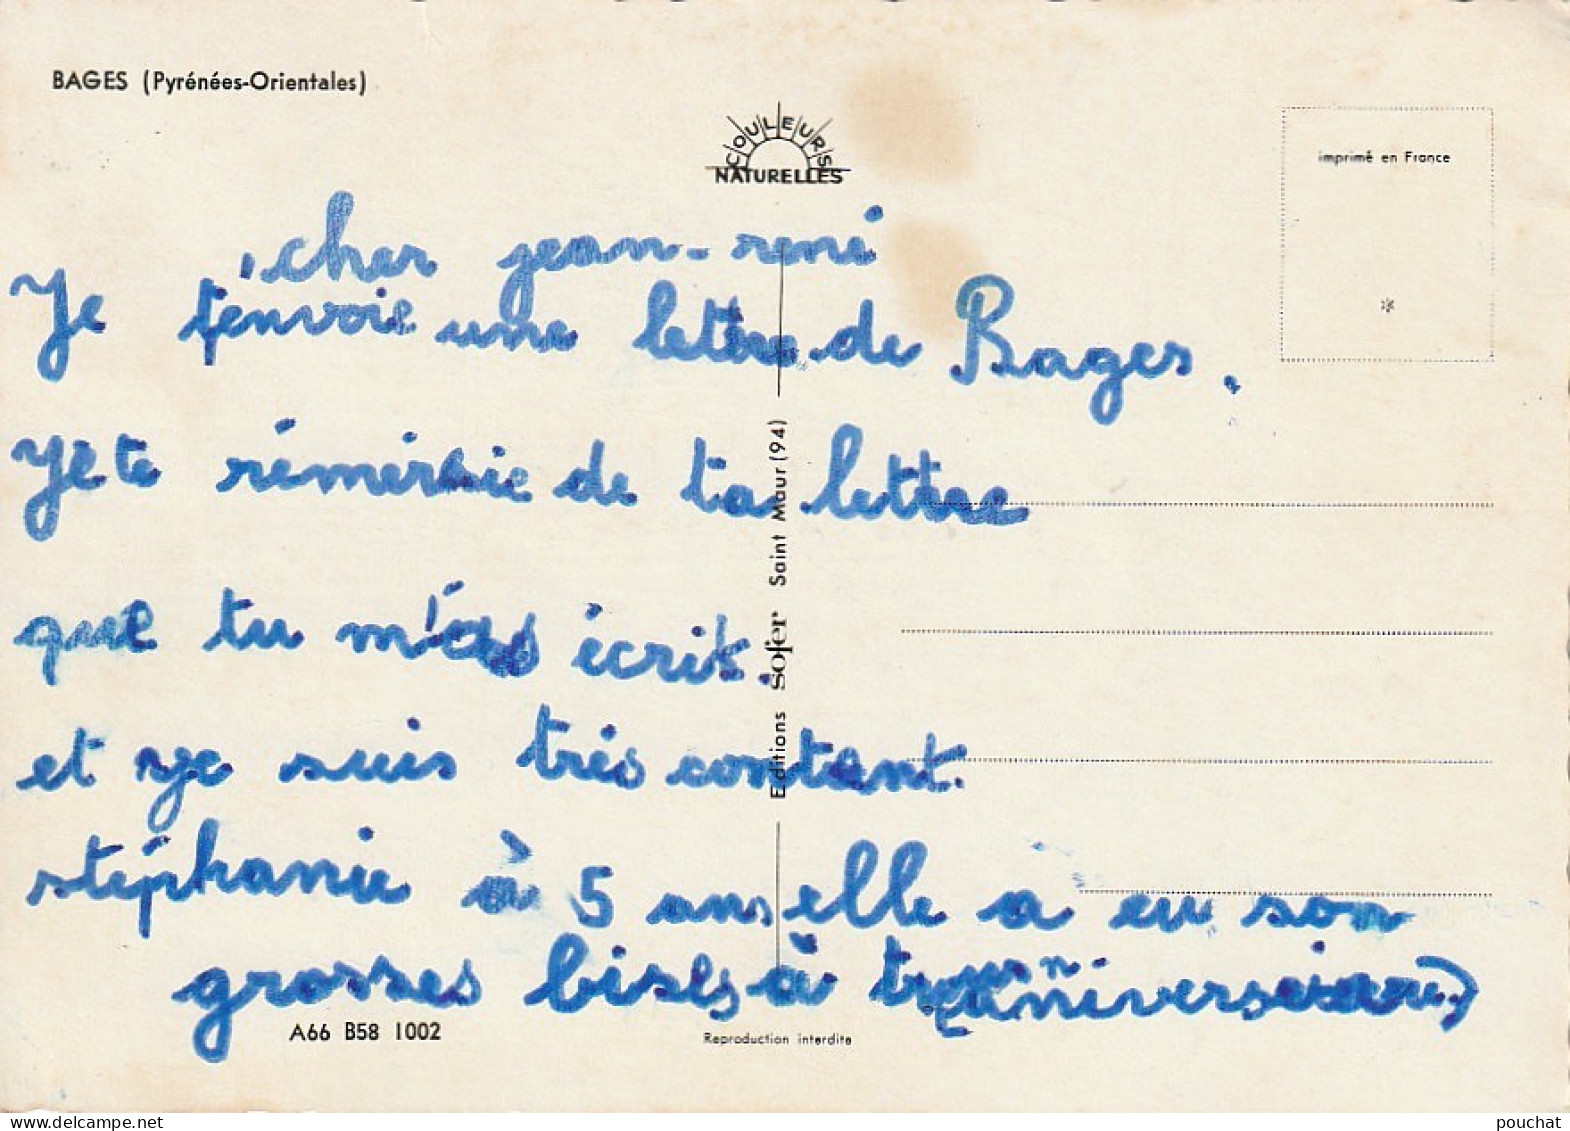 BAGES (Pyrénées-Orientales)
COULEURS
NATURELLES
imprimé en France
*
cher jean-réné
Je t'envoie une lettre de Bages.
Je te rémércie de ta lettre
que tu m'as écrit.
et je suis trés content.
stéphanie à 5 ans elle a eu son
(anniversaire)
grosses bises à
Editions Sofer Saint Maur (94)
A66 B58 1002
Reproduction interdite
delcampe.net
pouchat